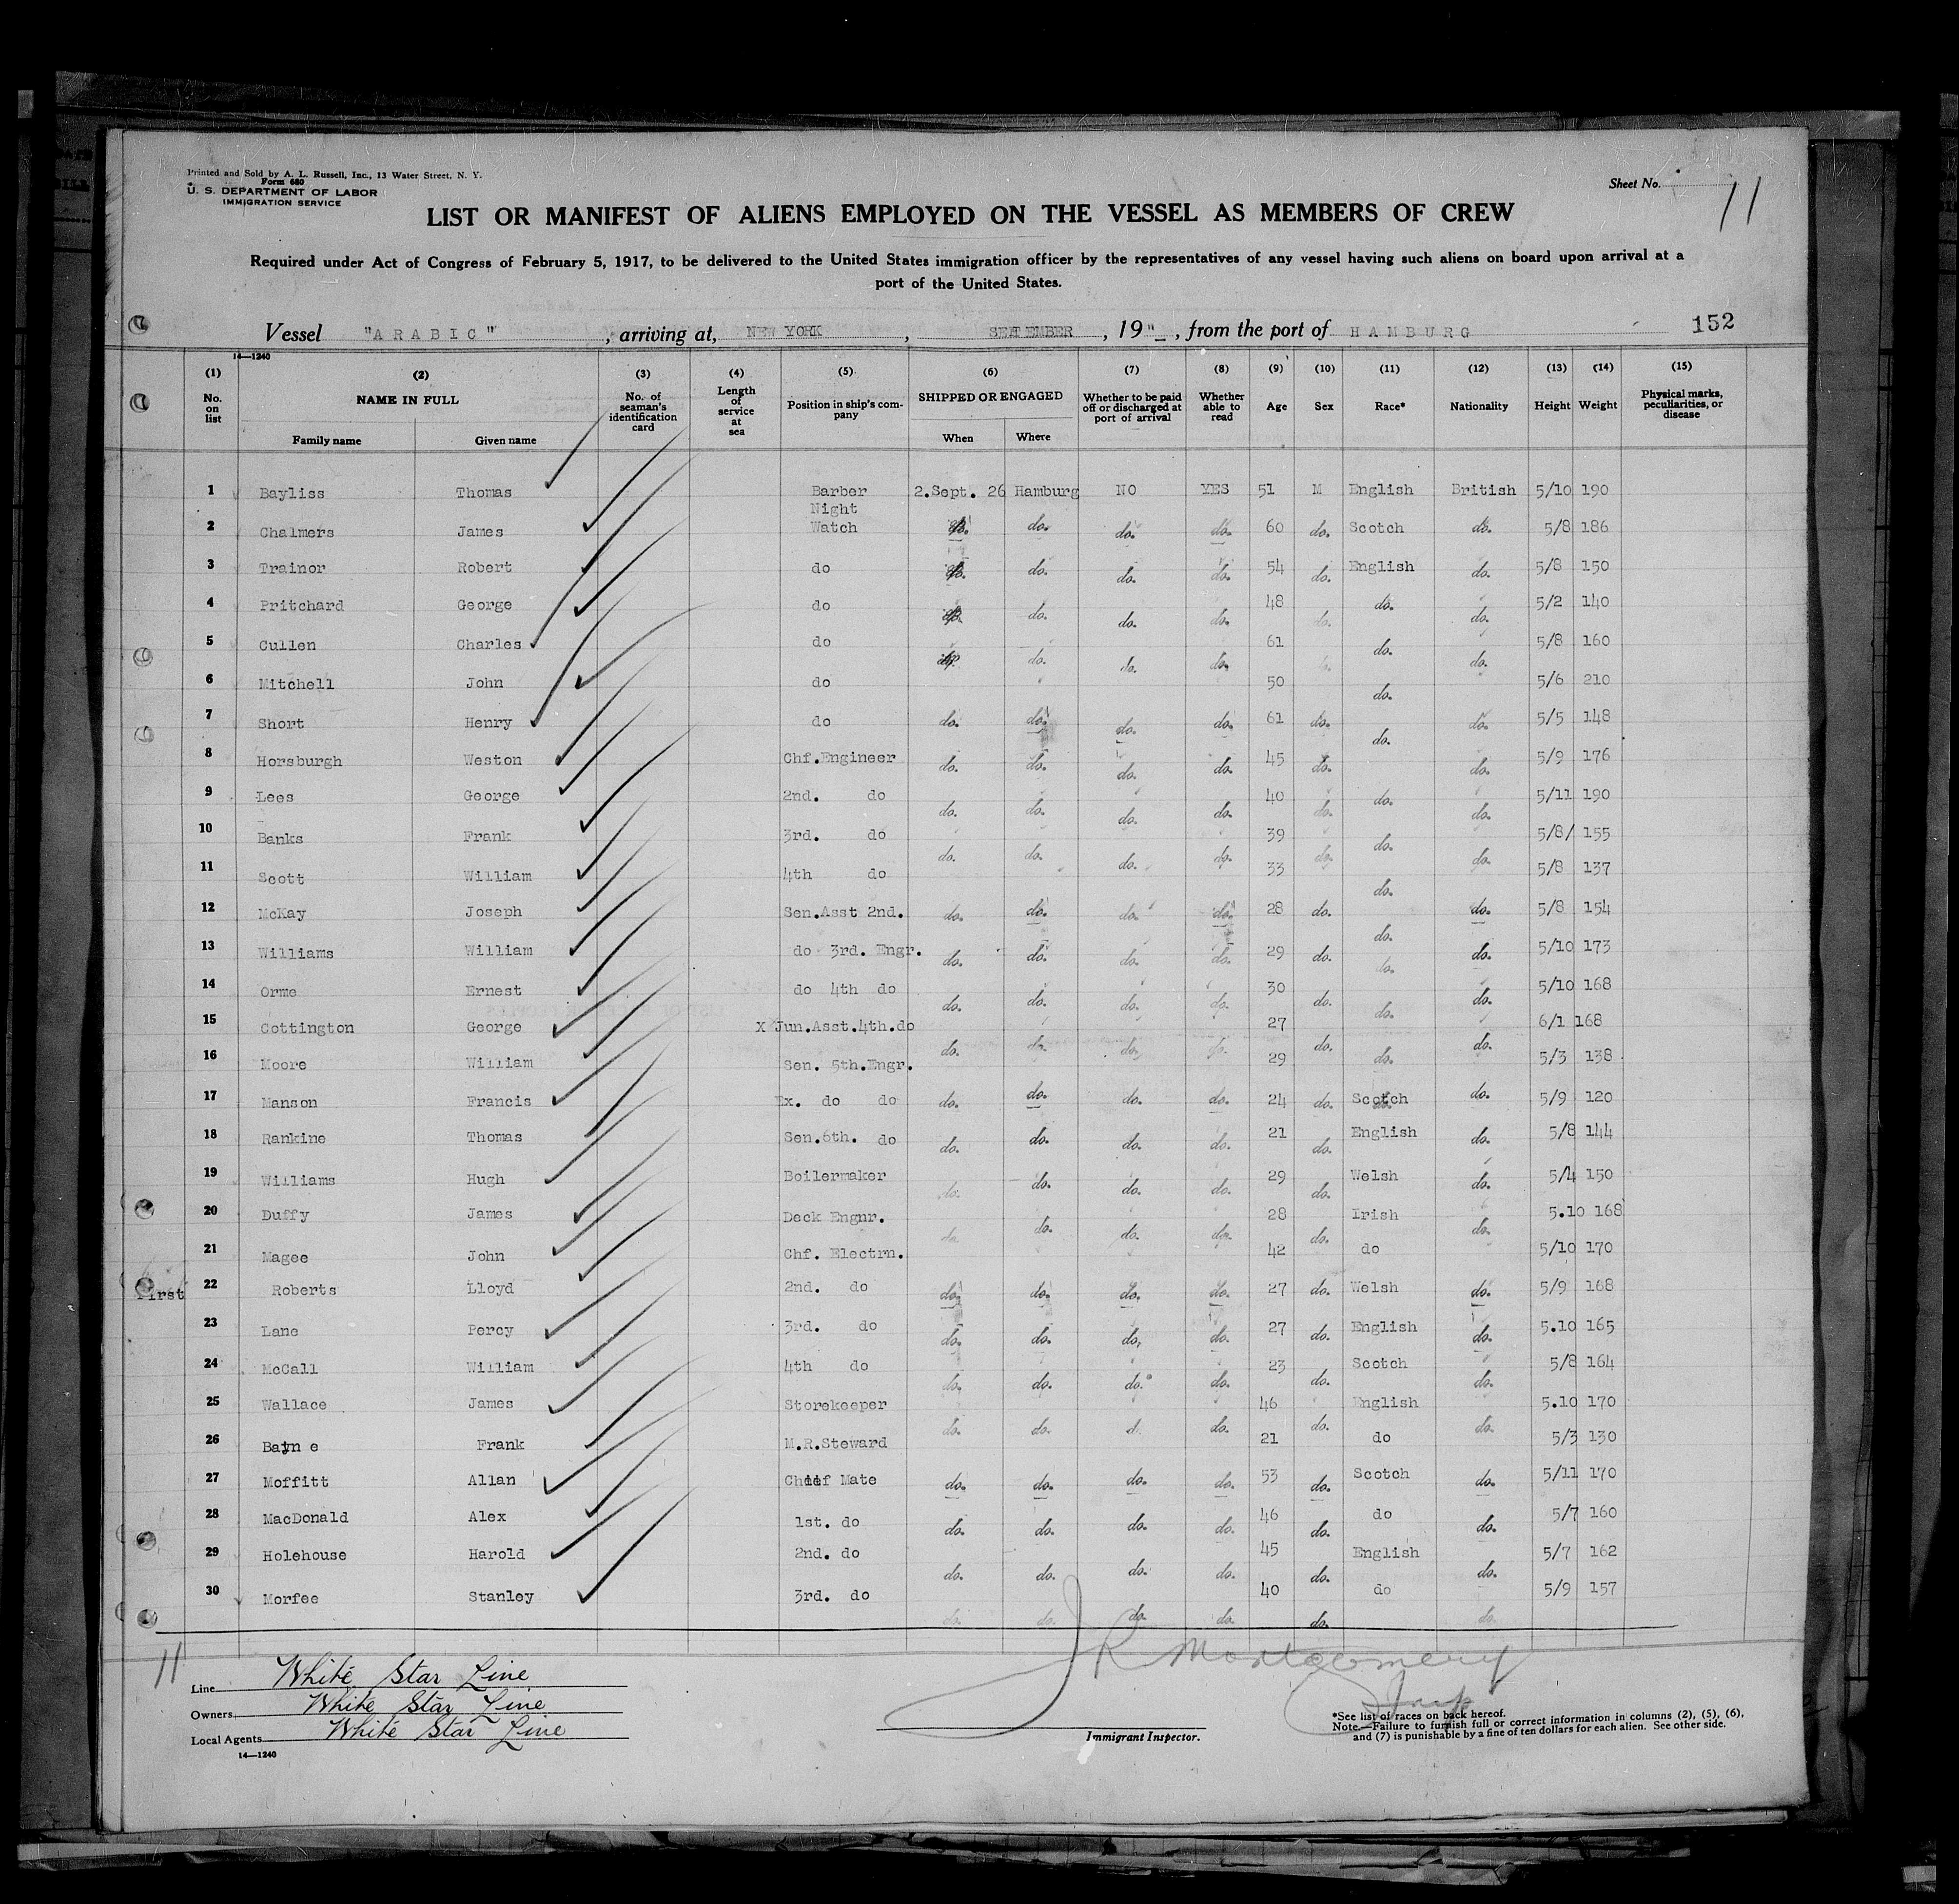 Printed and Sold by A. L. Russell, Inc., 13 Water Street, N. Y.
Form 680
U. S. DEPARTMENT OF LABOR
IMMIGRATION SERVICE
Sheet No. 11
LIST OR MANIFEST OF ALIENS EMPLOYED ON THE VESSEL AS MEMBERS OF CREW
Required under Act of Congress of February 5, 1917, to be delivered to the United States immigration officer by the representatives of any vessel having such aliens on board upon arrival at a
port of the United States.
Vessel "ARABIC", arriving at, NEW YORK, SEPTEMBER, 19", from the port of HAMBURG 152
14—1240
(1) No. on list (2) NAME IN FULL Family name Given name (3) No. of seaman's identification card (4) Length of service at sea (5) Position in ship's company (6) SHIPPED OR ENGAGED When Where (7) Whether to be paid off or discharged at port of arrival (8) Whether able to read (9) Age (10) Sex (11) Race* (12) Nationality (13) Height (14) Weight (15) Physical marks, peculiarities, or disease
1 Bayliss Thomas Barber 2.Sept. 26 Hamburg NO YES 51 M English British 5/10 190
2 Chalmers James Night Watch do. do. do. do. 60 do. Scotch do. 5/8 186
3 Trainor Robert do do. do. do. do. 54 do. English do. 5/8 150
4 Pritchard George do do. do. do. do. 48 do. do. do. 5/2 140
5 Cullen Charles do do. do. do. do. 61 do. do. 5/8 160
6 Mitchell John do 50 do. 5/6 210
7 Short Henry do do. do. do. do. 61 do. do. do. 5/5 148
8 Horsburgh Weston Chf.Engineer do. do. do. do. 45 do. do. 5/9 176
9 Lees George 2nd. do do. do. do. do. 40 do. do. do. 5/11 190
10 Banks Frank 3rd. do do. do. do. do. 39 do. do. do. 5/8/ 155
11 Scott William 4th do 33 do. 5/8 137
12 McKay Joseph Sen.Asst 2nd. do. do. do. do. 28 do. do. do. 5/8 154
13 Williams William do 3rd. Engr. do. do. do. do. 29 do. do. do. 5/10 173
14 Orme Ernest do 4th do do. do. do. do. 30 do. do. do. 5/10 168
15 Cottington George X Jun.Asst.4th.do do. do. do. do. 27 do. do. 6/1 168
16 Moore William Sen. 5th.Engr. 29 do. 5/3 138
17 Manson Francis Ex. do do do. do. do. do. 24 do. Scotch do. 5/9 120
18 Rankine Thomas Sen.6th. do do. do. do. do. 21 do. English do. 5/8 144
19 Williams Hugh Boilermaker do. do. do. do. 29 do. Welsh do. 5/4 150
20 Duffy James Deck Engnr. do. do. do. do. 28 do. Irish do. 5.10 168
21 Magee John Chf. Electrn. 42 do 5/10 170
First 22 Roberts Lloyd 2nd. do do. do. do. do. 27 do. Welsh do. 5/9 168
23 Lane Percy 3rd. do do. do. do. do. 27 do. English do. 5.10 165
24 McCall William 4th do do. do. do. do. 23 do. Scotch do. 5/8 164
25 Wallace James Storekeeper do. do. d. do. 46 do. English do. 5.10 170
26 Frank M.R.Steward 21 do 5/3 130
27 Moffitt Allan Chief Mate do. do. do. do. 53 do. Scotch do. 5/11 170
28 MacDonald Alex 1st. do do. do. do. do. 46 do. do do. 5/7 160
29 Holehouse Harold 2nd. do do. do. do. do. 45 do. English do. 5/7 162
30 Morfee Stanley 3rd. do do. do. do. do. 40 do. do do. 5/9 157
11
Line White Star Line
Owners White Star Line
Local Agents White Star Line
14—1240
J R Montgomery
Immigrant Inspector.
*See list of races on back hereof.
Note.—Failure to furnish full or correct information in columns (2), (5), (6),
and (7) is punishable by a fine of ten dollars for each alien. See other side.